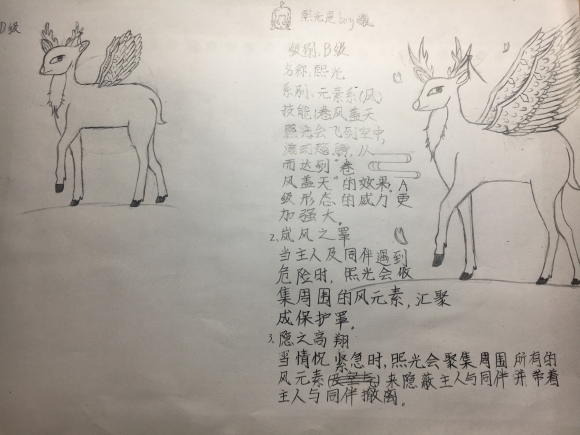 D级
熙光是boy哦
级别:B级
名称:熙光
系别:元素系(风)
技能1卷风盖天
熙光会飞到空中,
而达到“卷
风盖天”的效果。A
级形态的威力更
加强大。
2.岚风之罩
当主人及同伴遇到
危险时,熙光会收
集周围的风元素,汇聚
成保护罩。
3.隐之高翔
当情忆紧急时,熙光会聚集周围所有的
风元素来隐蔽主人与同伴并带着
主人与同伴撤离。